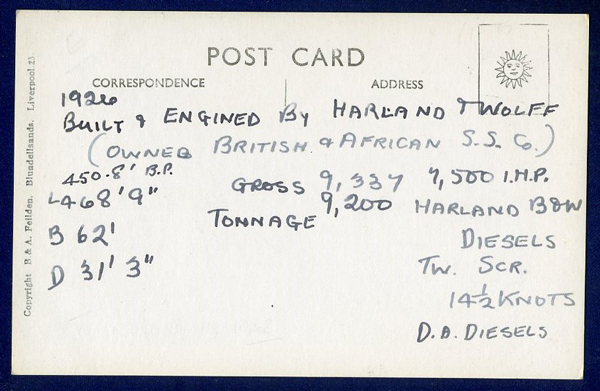 POST CARD
CORRESPONDENCE
ADDRESS
1926
BUILT & ENGINED By HARLAND & WOLFF
(OWNED BRITISH & AFRICAN S.S. Co.)
450.8' B.P.
L468'9"
B 62'
D 31' 3"
GROSS 9,337
TONNAGE 9,200
7,500 I.H.P.
HARLAND B&W
DIESELS
TW. SCR.
14½ KNOTS
D.A. DIESELS
Copyright B. & A. Feilden. Blundellsands, Liverpool 23